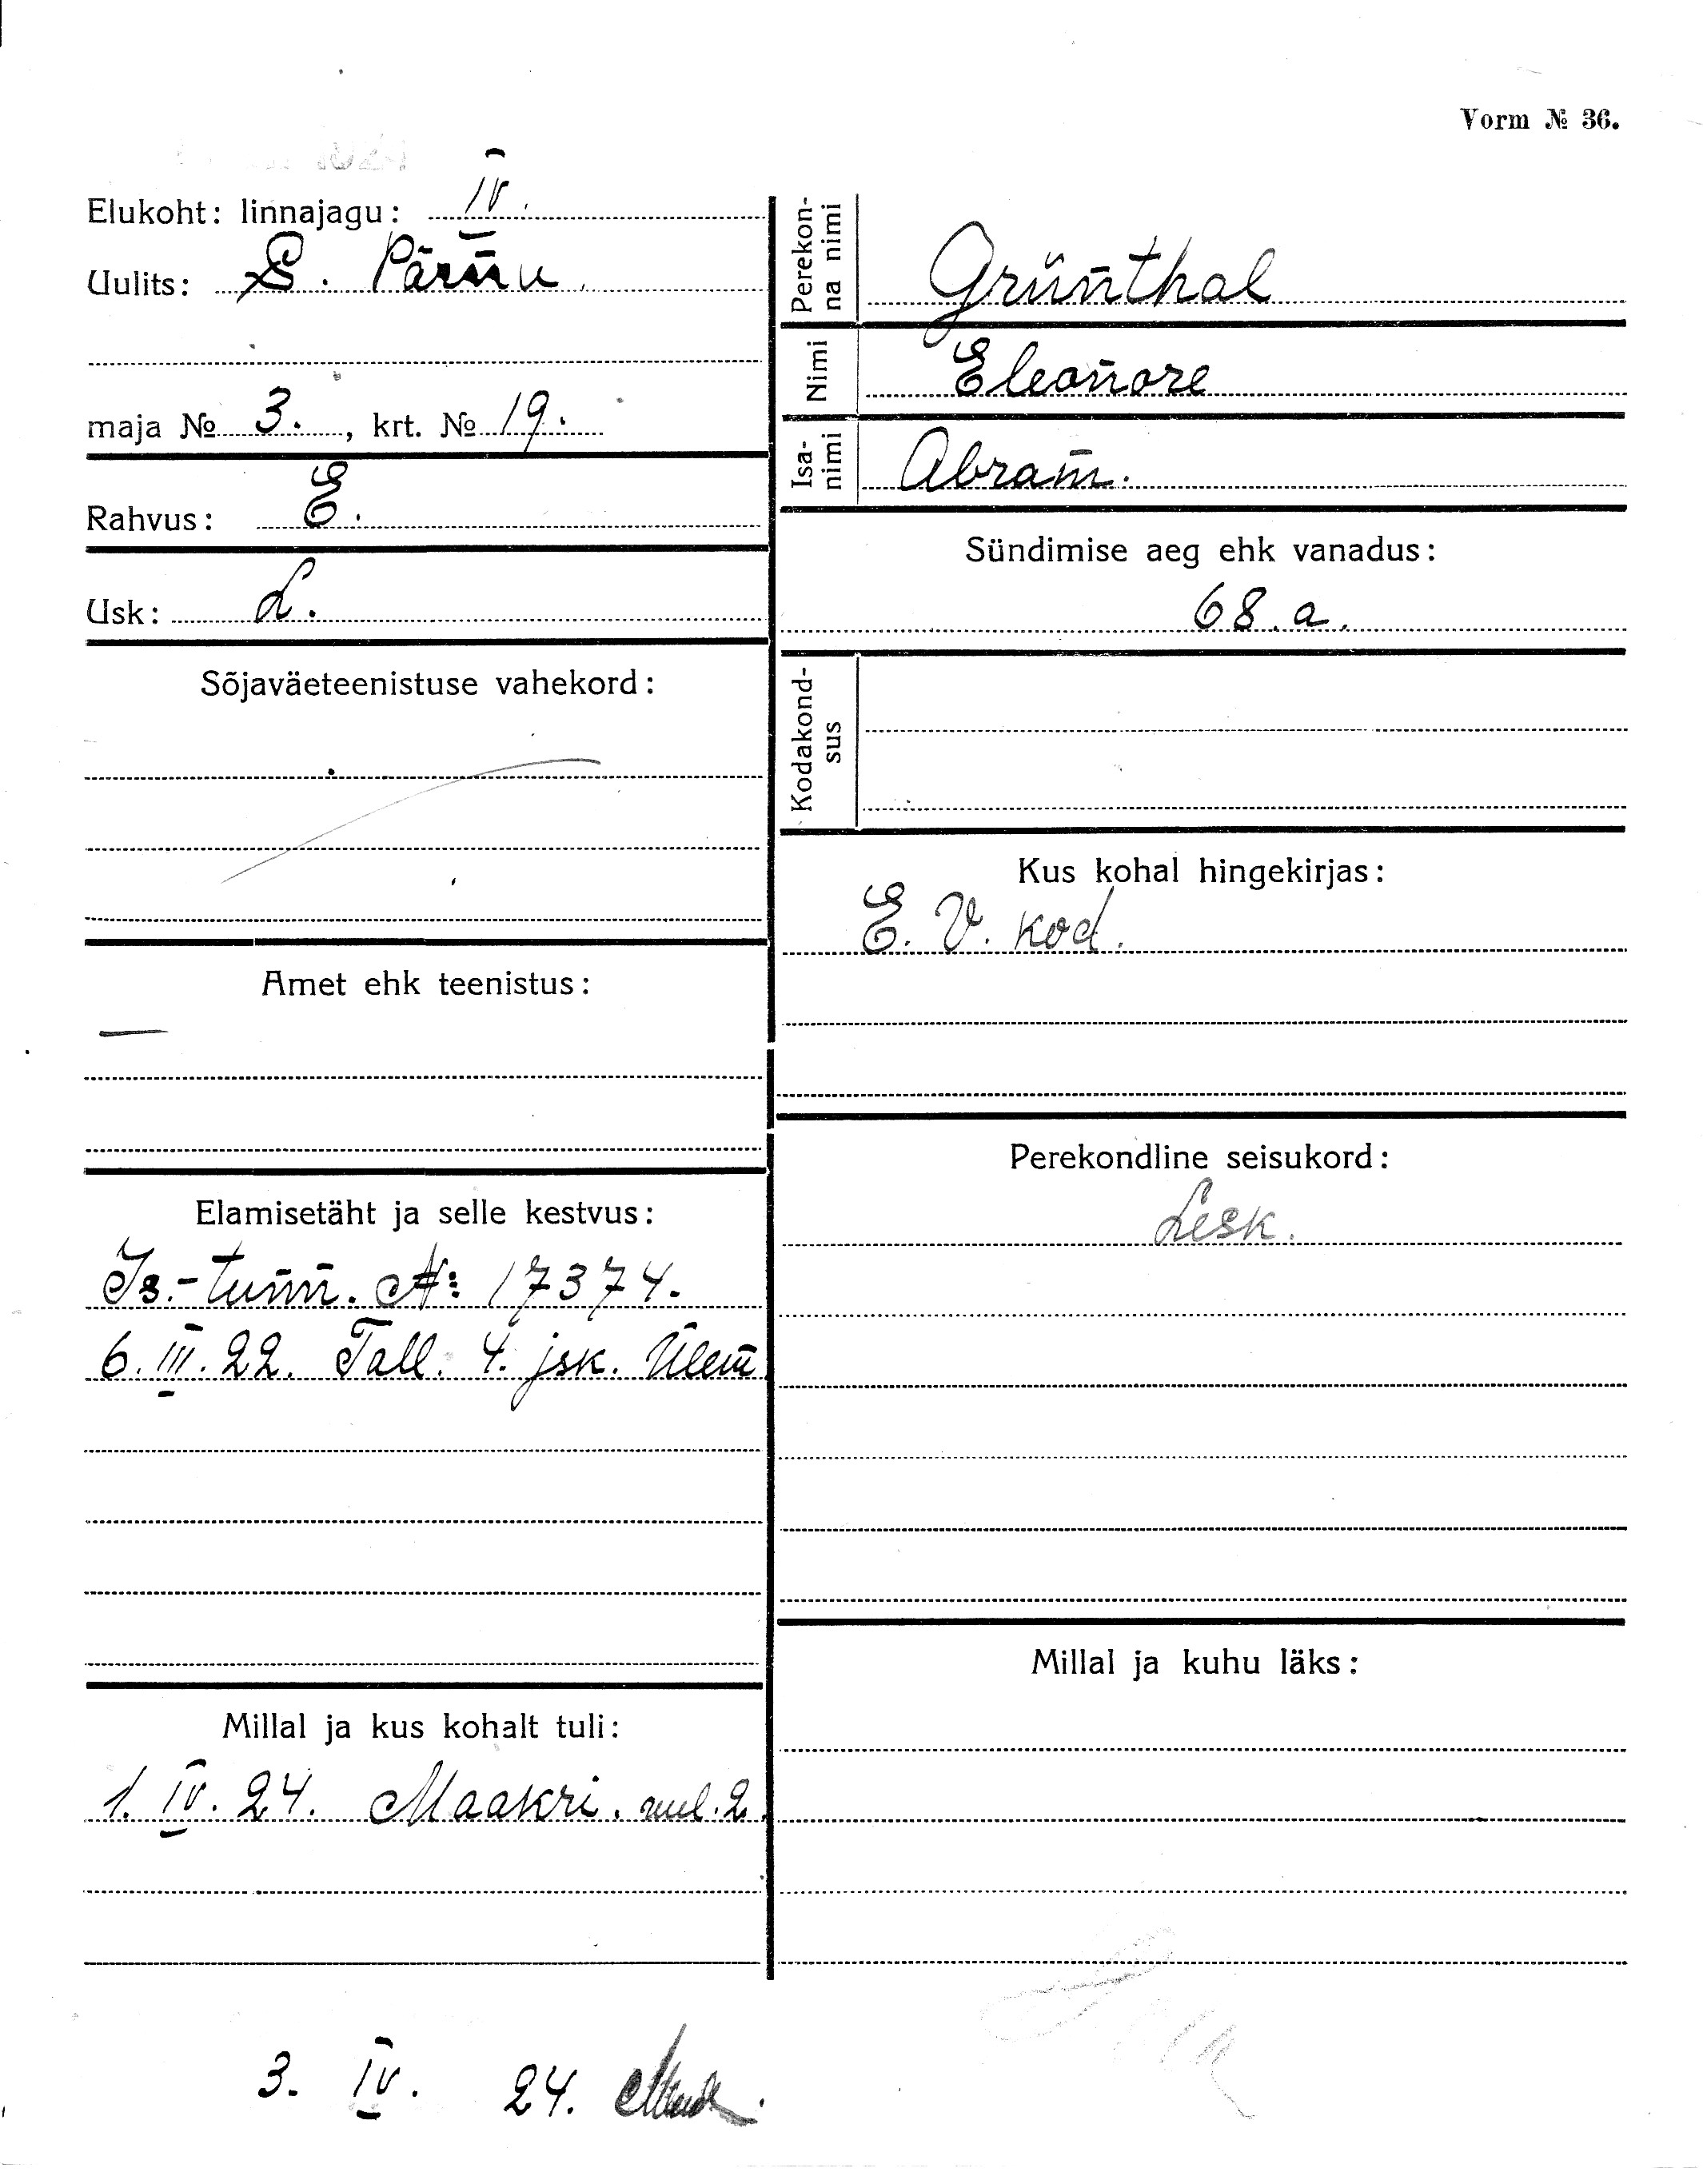 Vorm № 36.
Elukoht: linnajagu: IV.
Uulits: S. Pärnu
maja № 3., krt. № 19.
Rahvus: E.
Usk: L.
Sõjaväeteenistuse vahekord:
Amet ehk teenistus:
—
Elamisetäht ja selle kestvus:
Is.-tunn. №: 17374.
6. III. 22. Tall. 4. jsk. Ülem
Millal ja kus kohalt tuli:
1. IV. 24. Maakri. uul. 2.
Perekonna nimi Grünthal
Nimi Eleonore
Isanimi Abram.
Sündimise aeg ehk vanadus:
68. a.
Kodakondsus
Kus kohal hingekirjas:
E. V. kod.
Perekondline seisukord:
Lesk.
Millal ja kuhu läks:
3. IV. 24.